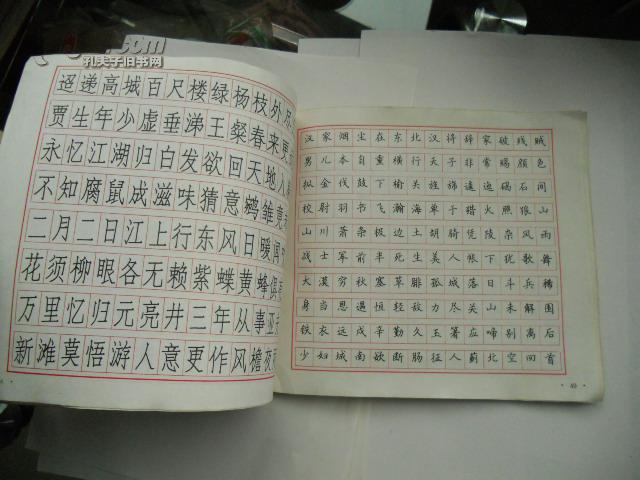 .com
孔夫子旧书网
迢递高城百尺楼绿杨枝外尽
贾生年少虚垂涕王粲春来更
永忆江湖归白发欲回天地入
不知腐鼠成滋味猜意鹓雏竟
二月二日江上行东风日暖闻
花须柳眼各无赖紫蝶黄蜂俱
万里忆归元亮井三年从事亚
新滩莫悟游人意更作风檐夜
汉家烟尘在东北汉将辞家破残贼
男儿本自重横行天子非常赐颜色
金伐鼓下榆关旌旆逶迤碣石间
校尉羽书飞瀚海单于猎火照狼山
山川萧条极边土胡骑凭陵杂风雨
战士军前半死生美人帐下犹歌舞
大漠穷秋塞草腓孤城落日斗兵稀
身当恩遇恒轻敌力尽关山未解围
铁衣远戍辛勤久玉箸应啼别离后
少妇城南欲断肠征人蓟北空回首